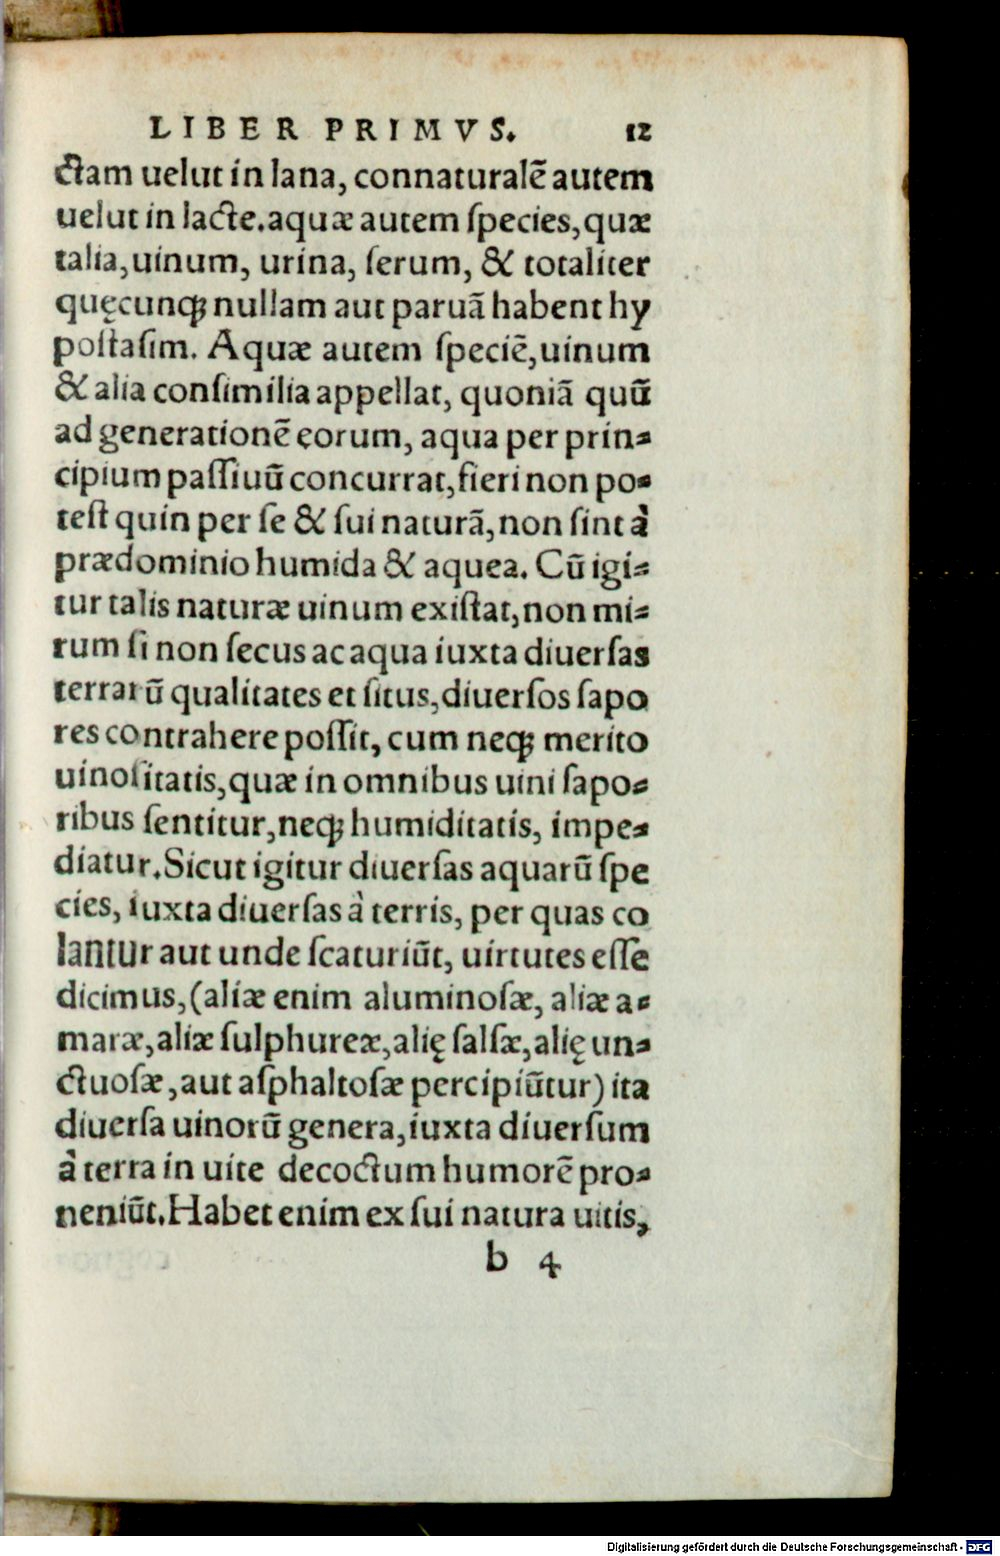 LIBER PRIMVS. 12
ctam uelut in lana, connaturalẽ autem
uelut in lacte. aquæ autem ſpecies, quæ
talia, uinum, urina, ſerum, & totaliter
quęcunq; nullam aut paruã habent hy
poſtaſim. Aquæ autem ſpeciẽ, uinum
& alia conſimilia appellat, quoniã quũ
ad generationẽ eorum, aqua per prin-
cipium paſſiuũ concurrat, fieri non po-
teſt quin per ſe & ſui naturã, non ſint à
prædominio humida & aquea. Cũ igi-
tur talis naturæ uinum exiſtat, non mi-
rum ſi non ſecus ac aqua iuxta diuerſas
terrarũ qualitates et ſitus, diuerſos ſapo
res contrahere poſſit, cum neq; merito
uinoſitatis, quæ in omnibus uini ſapo-
ribus ſentitur, neq; humiditatis, impe-
diatur. Sicut igitur diuerſas aquarũ ſpe
cies, iuxta diuerſas à terris, per quas co
lantur aut unde ſcaturiũt, uirtutes eſſe
dicimus, (aliæ enim aluminoſæ, aliæ a-
maræ, aliæ ſulphureæ, alię ſalſæ, alię un-
ctuoſæ, aut aſphaltoſæ percipiũtur) ita
diuerſa uinorũ genera, iuxta diuerſum
à terra in uite decoctum humorẽ pro-
neniũt. Habet enim ex ſui natura uitis,
b 4
Digitalisierung gefördert durch die Deutsche Forschungsgemeinschaft - DFG